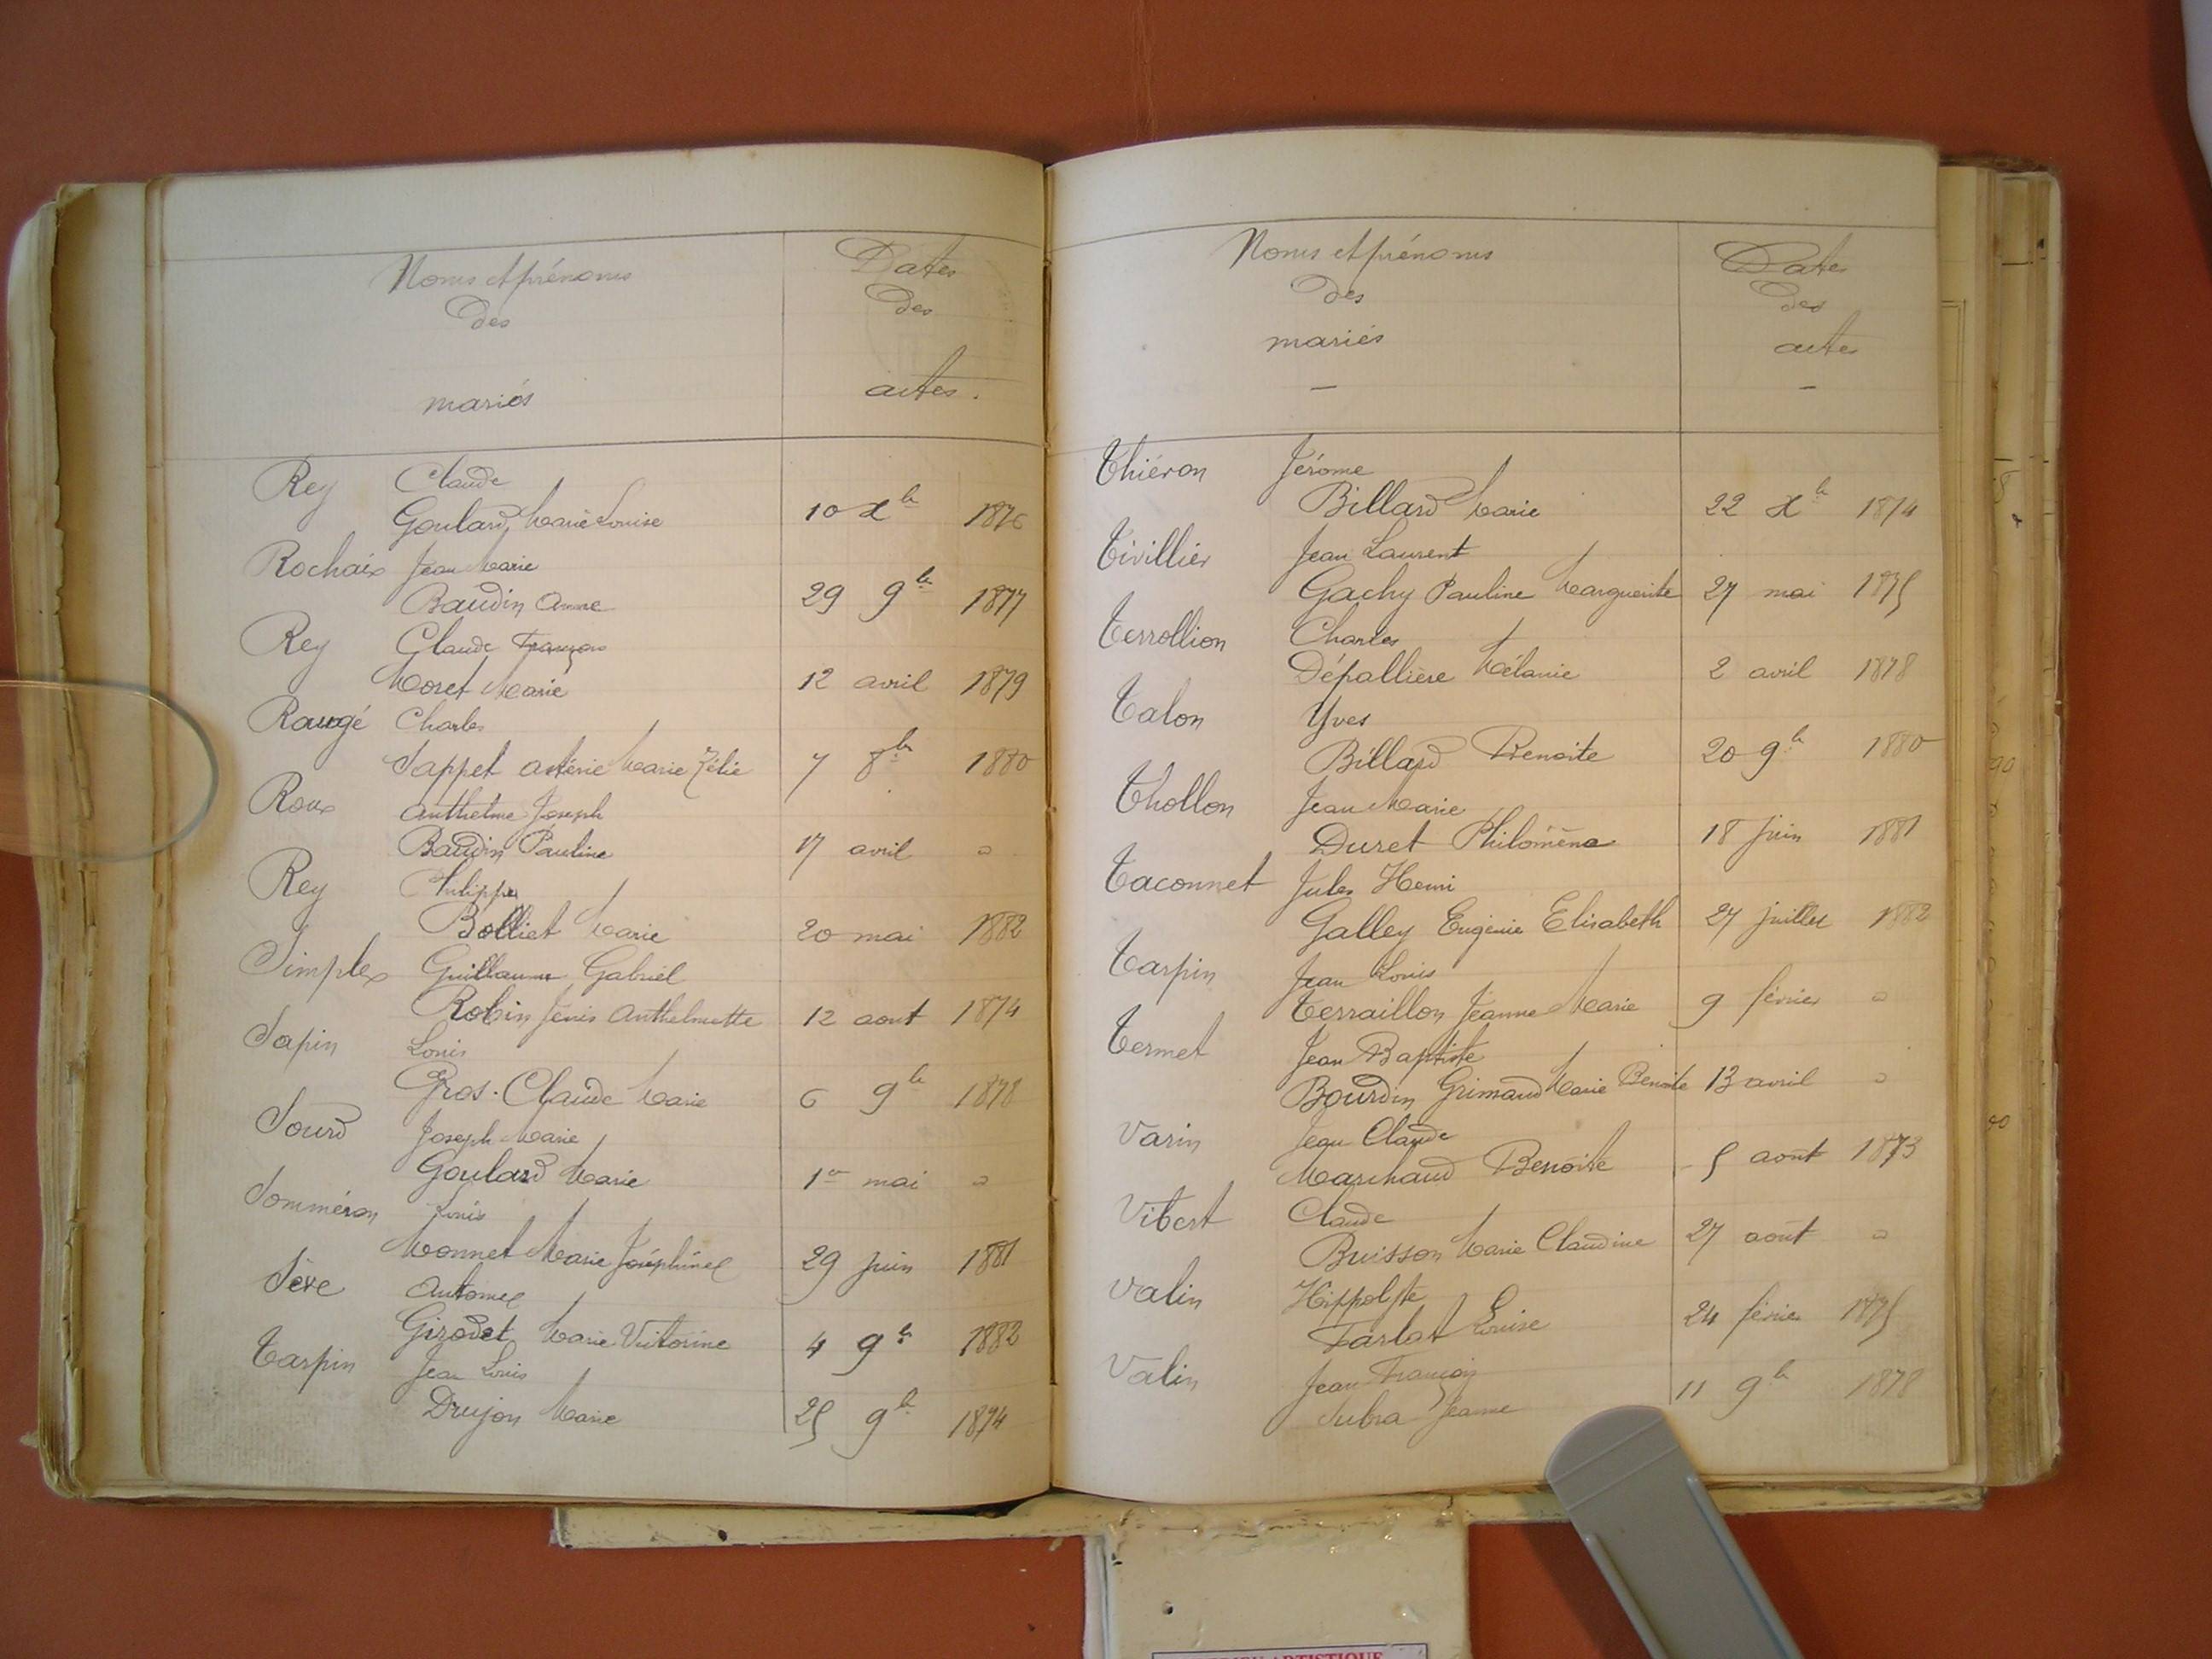 Noms et prénoms
des
mariés
Dates
des
actes.
Rey Claude
Goulard Marie Louise 10 Xbre 1876
Rochaix Jean Marie
Baudin Anne 29 9bre 1877
Rey Claude François
Moret Marie 12 avril 1879
Raugé Charles
Sappet Astérie Marie Zélie 7 8bre 1880
Roux Anthelme Joseph
Baudin Pauline 17 avril "
Rey Philippe
Bolliet Marie 20 mai 1882
Simplex Guillaume Gabriel
Robin Anthelmette 12 aout 1874
Sapin Louis
Gros-Claude Marie 6 9bre 1878
Sourd Joseph Marie
Goulard Marie 1er mai "
Somméron Louis
Monnet Marie Joséphine 29 juin 1881
Sève Antoine
Girodet Marie Victorine 4 9bre 1882
Tarpin Jean Louis
Drujon Marie 25 9bre 1874
Noms et prénoms
des
mariés
—
Dates
des
actes
—
Thiéron Jérome
Billard Marie 22 Xbre 1874
Tivillier Jean Laurent
Gachy Pauline Marguerite 27 mai 1875
Terrollion Charles
Dépallière Mélanie 2 avril 1878
Talon Yves
Billard Benoite 20 9bre 1880
Thollon Jean Marie
Duret Philomène 18 juin 1881
Taconnet Jules Henri
Galley Eugénie Elisabeth 27 juillet 1882
Tarpin Jean Louis
Terraillon Jeanne Marie 9 février "
Termet Jean Baptiste
Bourdin Grimaud Marie Benoite 13 avril "
Varin Jean Claude
Marchand Benoîte 5 août 1873
Vibert Claude
Buisson Marie Claudine 27 août "
Valin Hippolyte
Farlat Louise 24 février 1875
Valin Jean François
Subra Jeanne 11 9bre 1878